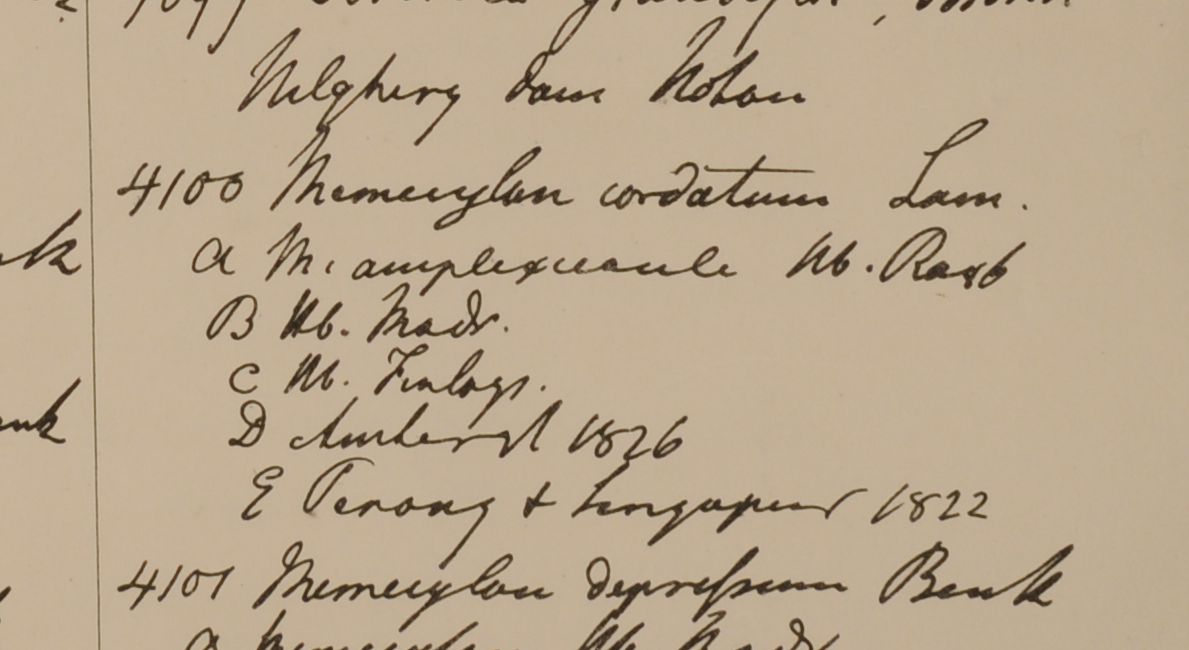 Nilghery Dom Noton
4100 Memecylon cordatum Lam.
A M. amplexicaule Hb. Roxb
B Hb. Madr.
C Hb. Finlays.
D Amherst 1826
E Penang & Singapur 1822
4101 Memecylon depressum Benth